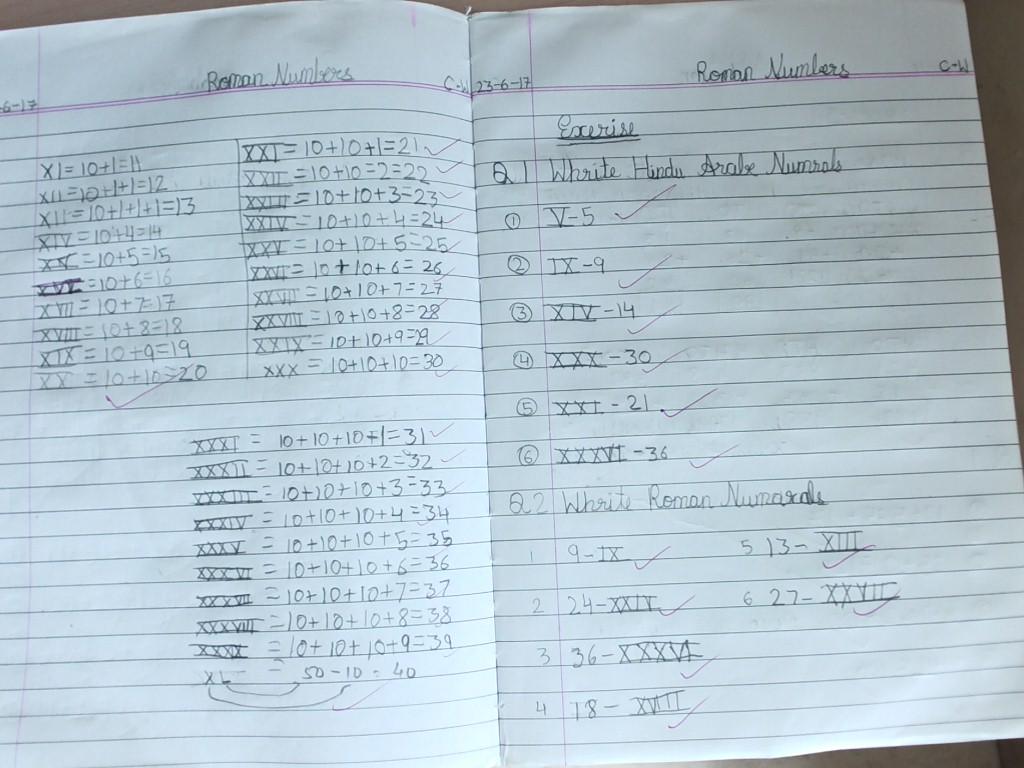 Roman Numbers
C-W
-6-17
XI = 10+1=11
XII=10+1+1=12
XII=10+1+1+1=13
XIV=10+4=14
XV=10+5=15
XVI=10+6=16
XVII=10+7=17
XVIII=10+8=18
XIX=10+9=19
XX=10+10=20
XXI=10+10+1=21
XXII=10+10=2=22
XXIII=10+10+3=23
XXIV=10+10+4=24
XXV=10+10+5=25
XXVI=10+10+6=26
XXVII=10+10+7=27
XXVIII=10+10+8=28
XXIX=10+10+9=29
XXX=10+10+10=30
XXXI = 10+10+10+1=31
XXXII = 10+10+10+2=32
XXXIII = 10+10+10+3=33
XXXIV = 10+10+10+4=34
XXXV = 10+10+10+5=35
XXXVI = 10+10+10+6=36
XXXVII = 10+10+10+7=37
XXXVIII = 10+10+10+8=38
XXXIX = 10+10+10+9=39
XL = 50-10=40
23-6-17
Roman Numbers
C-W
Exerise
Q1 Whrite Hindu Arabe Numrals
1 V-5
2 IX-9
3 XIV-14
4 XXX-30
5 XXI-21
6 XXXVI-36
Q2 Whrite Roman Numarals
1 9-IX
2 24-XXIV
3 36-XXXVI
4 18-XVIII
5 13-XIII
6 27-XXVII